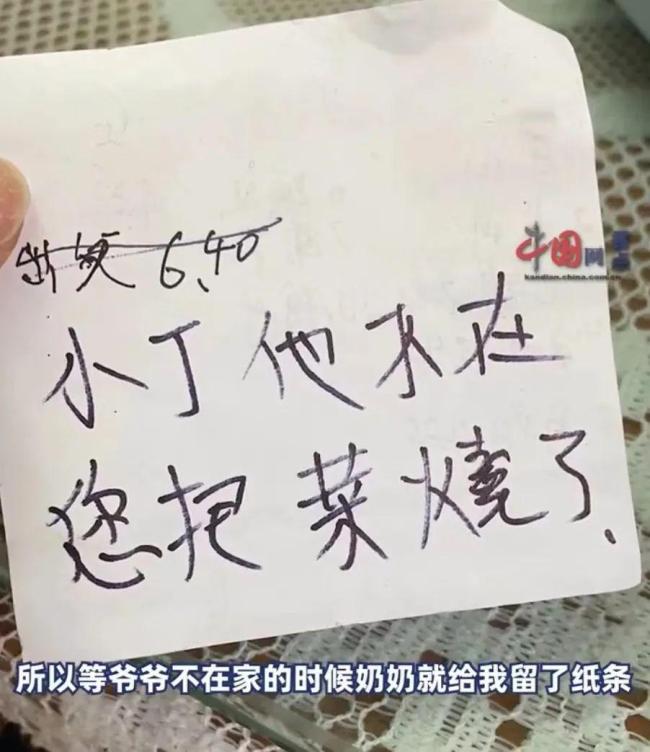 6.40
中国网
kandian.china.com.cn
小丁他不在
您把菜烧了.
所以等爷爷不在家的时候奶奶就给我留了纸条